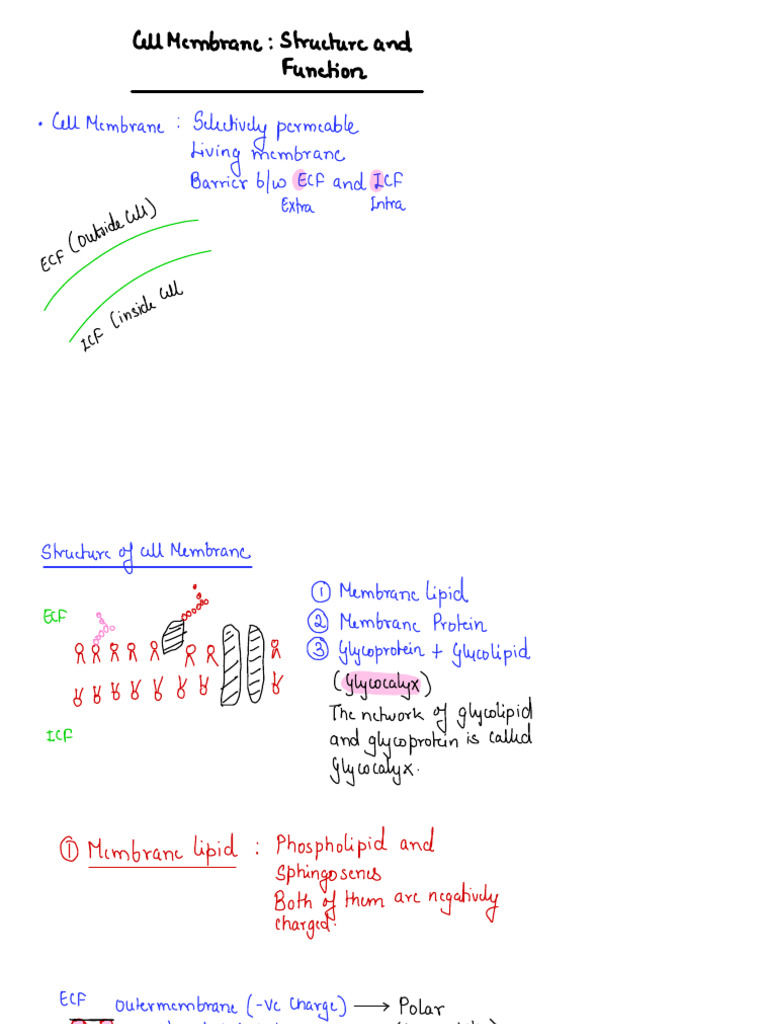 Cell Membrane : Structure and
Function
• Cell Membrane : Selectively permeable
Living membrane
Barrier b/w ECF and ICF
Extra Intra
ECF (outside cell)
ICF (inside cell
Structure of cell Membrane
ECF
ICF
① Membrane lipid
② Membrane Protein
③ Glycoprotein + Glycolipid
(Glycocalyx)
The network of glycolipid
and glycoprotein is called
Glycocalyx.
① Membrane lipid : Phospholipid and
Sphingosenes
Both of them are negatively
charged.
ECF outermembrane (-ve charge) → Polar